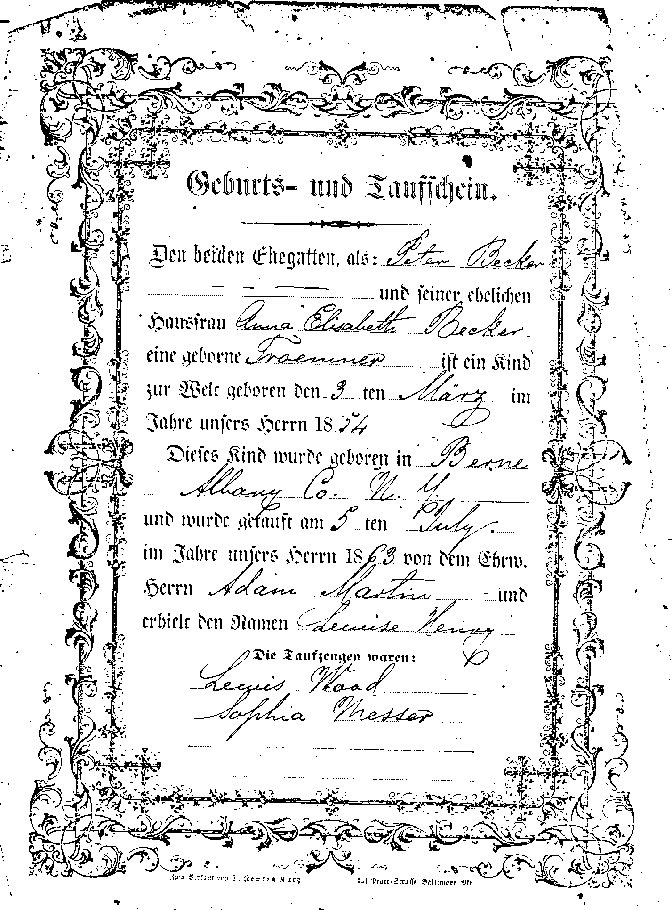 Geburts- und Taufschein.
Den beiden Ehegatten, als: Peter Becker
und seiner ehelichen
Hausfrau Anna Elisabeth Becker
eine geborne Traemmer ist ein Kind
zur Welt geboren den 3 ten März im
Jahre unsers Herrn 1854
Dieses Kind wurde geboren in Berne
Albany Co. N. Y
und wurde getauft am 5 ten July.
im Jahre unsers Herrn 1863 von dem Ehrw.
Herrn Adam Martin und
erhielt den Namen Henry
Die Taufzeugen waren:
Lewis Wood
Sophia Messer
Pratt-Strasse, Baltimore, Md.